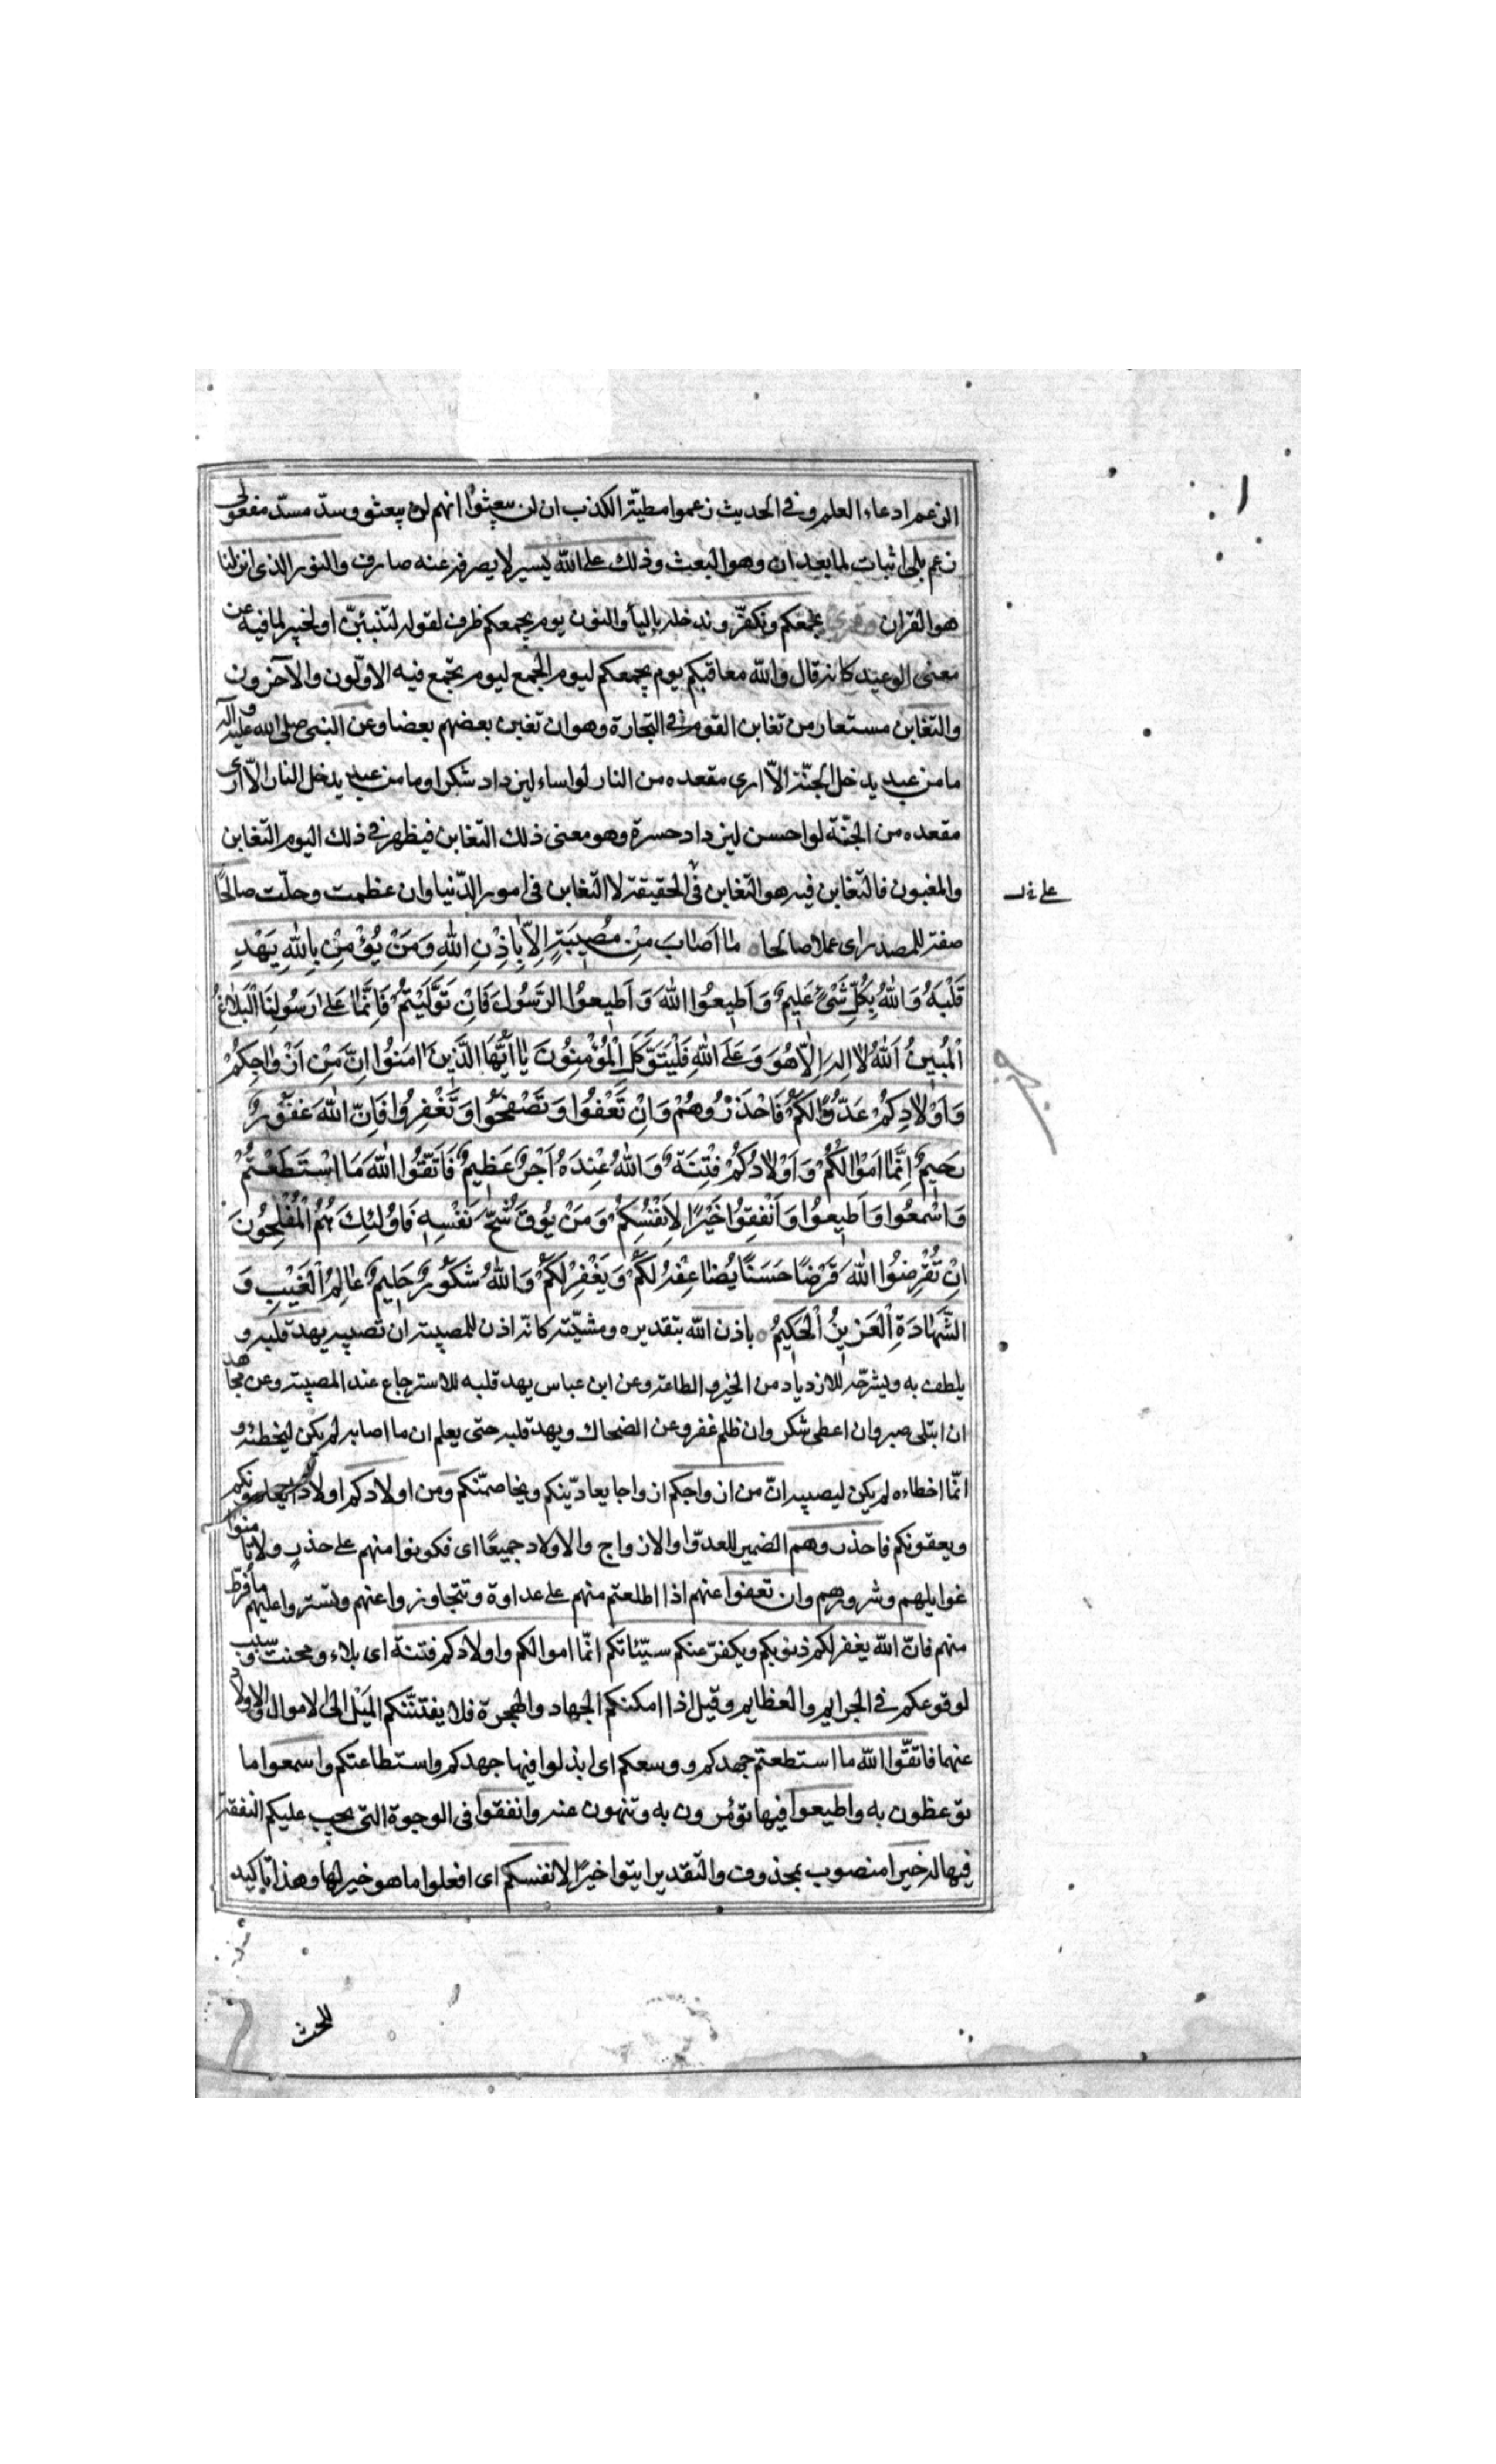 الزعم ادعاء العلم وفى الحديث زعموا مطيّة الكذب ان لن يبعثوا انهم لن يبعثوا وسدّ مسدّ مفعولى
زعم بلى اثبات لما بعد ان وهو البعث وذلك على الله يسير لا يصرفه عنه صارف والنور الذى انزلنا
هو القران وقرئ يجمعكم ونكفّر وندخله بالياء والنون يوم يجمعكم ظرف لقوله لتنبئنّ او لخبير لما فيه من
معنى الوعيد كانه قال والله معاقبكم يوم يجمعكم ليوم الجمع ليوم يجمع فيه الاوّلون والآخرون
والتغابن مستعار من تغابن القوم فى التجارة وهو ان تغبن بعضهم بعضا وعن النبى صلى الله عليه وآله
ما من عبد يدخل الجنّة الاّ ارى مقعده من النار لو اساء ليزداد شكرا وما من عبد يدخل النار الاّ ارى
مقعده من الجنّة لو احسن ليزداد حسرة وهو معنى ذلك التغابن فيظهر فى ذلك اليوم التغابن
والمغبون فالتّغابن فيه هو التغابن فى الحقيقة لا التّغابن فى امور الدّنيا وان عظمت وجلّت صالحًا
صفة للمصدر اى عملا صالحا مٰا اَصٰابَ مِنْ مُصٖيبَةٍ اِلاّٰ بِاِذْنِ اللهِ وَمَنْ يُؤْمِنْ بِاللهِ يَهْدِ
قَلْبَهُ وَاللهُ بِكُلِّ شَىْءٍ عَلٖيمٌ وَاَطٖيعُوا اللهَ وَاَطٖيعُوا الرَّسُولَ فَاِنْ تَوَلَّيْتُمْ فَاِنَّمٰا عَلىٰ رَسُولِنَا الْبَلاٰغُ
الْمُبٖينُ اَللهُ لاٰ اِلٰهَ اِلاّٰ هُوَ وَعَلَى اللهِ فَلْيَتَوَكَّلِ الْمُؤْمِنُونَ يٰا اَيُّهَا الَّذٖينَ اٰمَنُوا اِنَّ مِنْ اَزْوٰاجِكُمْ
وَاَوْلاٰدِكُمْ عَدُوًّا لَكُمْ فَاحْذَرُوهُمْ وَاِنْ تَعْفُوا وَتَصْفَحُوا وَتَغْفِرُوا فَاِنَّ اللهَ غَفُورٌ
رَحٖيمٌ اِنَّمٰا اَمْوٰالُكُمْ وَاَوْلاٰدُكُمْ فِتْنَةٌ وَاللهُ عِنْدَهُ اَجْرٌ عَظٖيمٌ فَاتَّقُوا اللهَ مَا اسْتَطَعْتُمْ
وَاسْمَعُوا وَاَطٖيعُوا وَاَنْفِقُوا خَيْرًا لِاَنْفُسِكُمْ وَمَنْ يُوقَ شُحَّ نَفْسِهٖ فَاُولٰئِكَ هُمُ الْمُفْلِحُونَ
اِنْ تُقْرِضُوا اللهَ قَرْضًا حَسَنًا يُضٰاعِفْهُ لَكُمْ وَيَغْفِرْ لَكُمْ وَاللهُ شَكُورٌ حَلٖيمٌ عٰالِمُ الْغَيْبِ وَ
الشَّهٰادَةِ الْعَزٖيزُ الْحَكٖيمُ باذن الله بتقديره ومشيّته كانّه اذن للمصيبة ان تصيبه يهد قلبه و
يلطف به ويشرحه للازدياد من الخير والطاعة وعن ابن عباس يهد قلبه للاسترجاع عند المصيبة وعن مجاهد
ان ابتلى صبر وان اعطى شكر وان ظلم غفر وعن الضحاك ويهد قلبه حتى يعلم ان ما اصابه لم يكن ليخطئه و
انّما اخطاءه لم يكن ليصيبه انّ من ازواجكم ازواجا يعادّينكم ويخاصمنّكم ومن اولادكم اولادا يعادونكم
ويعقونكم فاحذروهم الضمير للعدوّ او الازواج والاولاد جميعًا اى فكونوا منهم على حذرٍ ولا تأمنوا
غوايلهم وشرورهم وان تعفوا عنهم اذا اطلعتم منهم على عداوة وتتجاوزوا عنهم وتستروا عليهم ما فرط
منهم فانّ الله يغفر لكم ذنوبكم ويكفّر عنكم سيّئاتكم انّما اموالكم واولادكم فتنة اى بلاء ومحنت وسبب
لوقوعكم فى الجرايم والعظايم وقيل اذا امكنكم الجهاد والهجرة فلا يفتنّنكم الميَل الى الاموال والاولاد
عنهما فاتّقوا الله ما استطعتم جهدكم ووسعكم اى ابذلوا فيها جهدكم واستطاعتكم واسمعوا ما
توعظون به واطيعوا فيما تؤمرون به وتنهون عنه وانفقوا فى الوجوة التى يجب عليكم النفقة
فيها له خيرا منصوب بمحذوف والتقدير ايتوا خيرًا لانفسكم اى افعلوا ما هو خير لها وهذا تأكيد
للحث